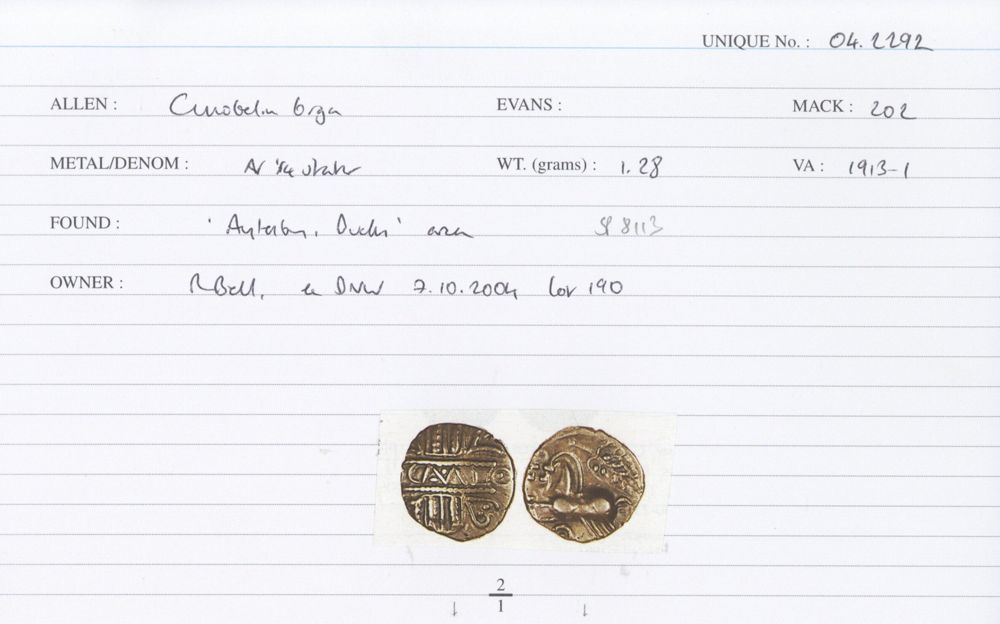 UNIQUE No. : 04.2292
ALLEN : Cunobelin biga EVANS : MACK : 202
METAL/DENOM : AV 1/4 stater WT. (grams) : 1.28 VA : 1913-1
FOUND : 'Aylesbury, Bucks' area SP 8113
OWNER : R Bell, ex DNW 7.10.2004 lot 190
CAMVL
2
1